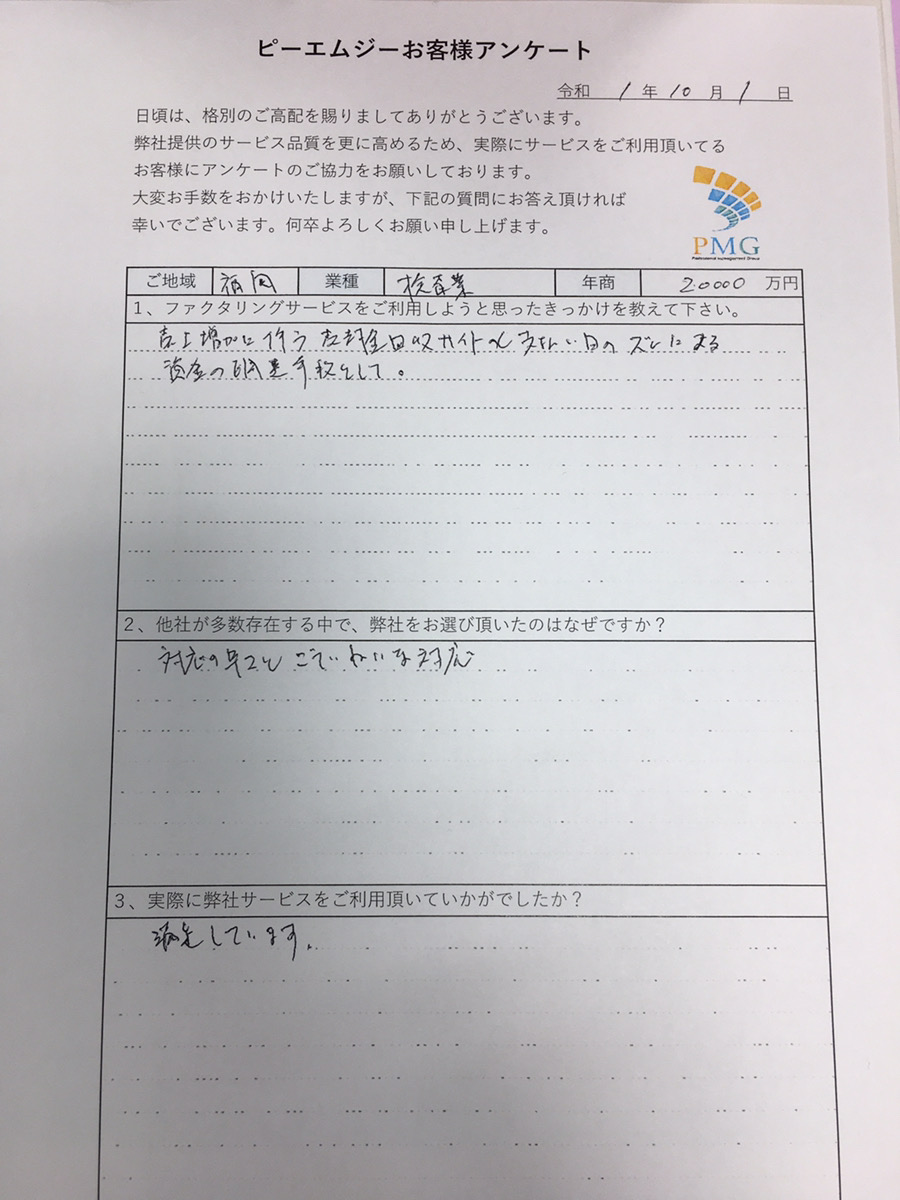 ピーエムジーお客様アンケート
令和 1 年 10 月 1 日
日頃は、格別のご高配を賜りましてありがとうございます。
弊社提供のサービス品質を更に高めるため、実際にサービスをご利用頂いてる
お客様にアンケートのご協力をお願いしております。
大変お手数をおかけいたしますが、下記の質問にお答え頂ければ
幸いでございます。何卒よろしくお願い申し上げます。
PMG
Professional Management Group
ご地域 福岡 業種 検査業 年商 20000 万円
1、ファクタリングサービスをご利用しようと思ったきっかけを教えて下さい。
売上増加に伴う 回収サイトと支払い日のズレによる
資金の調達手段として。
2、他社が多数存在する中で、弊社をお選び頂いたのはなぜですか？
対応の早さと ていねいな対応
3、実際に弊社サービスをご利用頂いていかがでしたか？
満足しています。